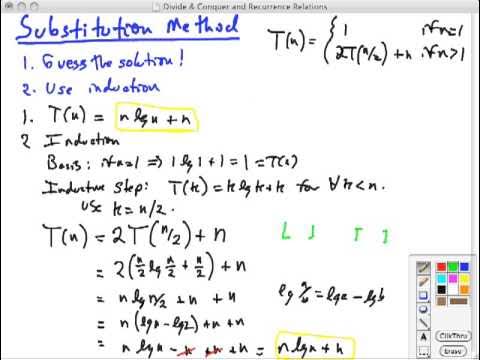 Divide & Conquer and Recurrence Relations
Substitution Method
T(n) = { 1 if n=1
2T(n/2) + n if n>1
1. Guess the solution!
2. Use induction
1. T(n) = n lg n + n
2 Induction
Basis: if n=1 ⇒ 1 lg 1 + 1 = 1 = T(1)
Inductive Step: T(k) = k lg k + k for ∀ k < n.
Use k = n/2.
T(n) = 2T(n/2) + n
⌊ ⌋ ⌈ ⌉
= 2(n/2 lg n/2 + n/2) + n
= n lg n/2 + n + n
lg a/b = lg a - lg b
= n (lg n - lg 2) + n + n
= n lg n - n + n + n = n lg n + n
ClikThru
Erase